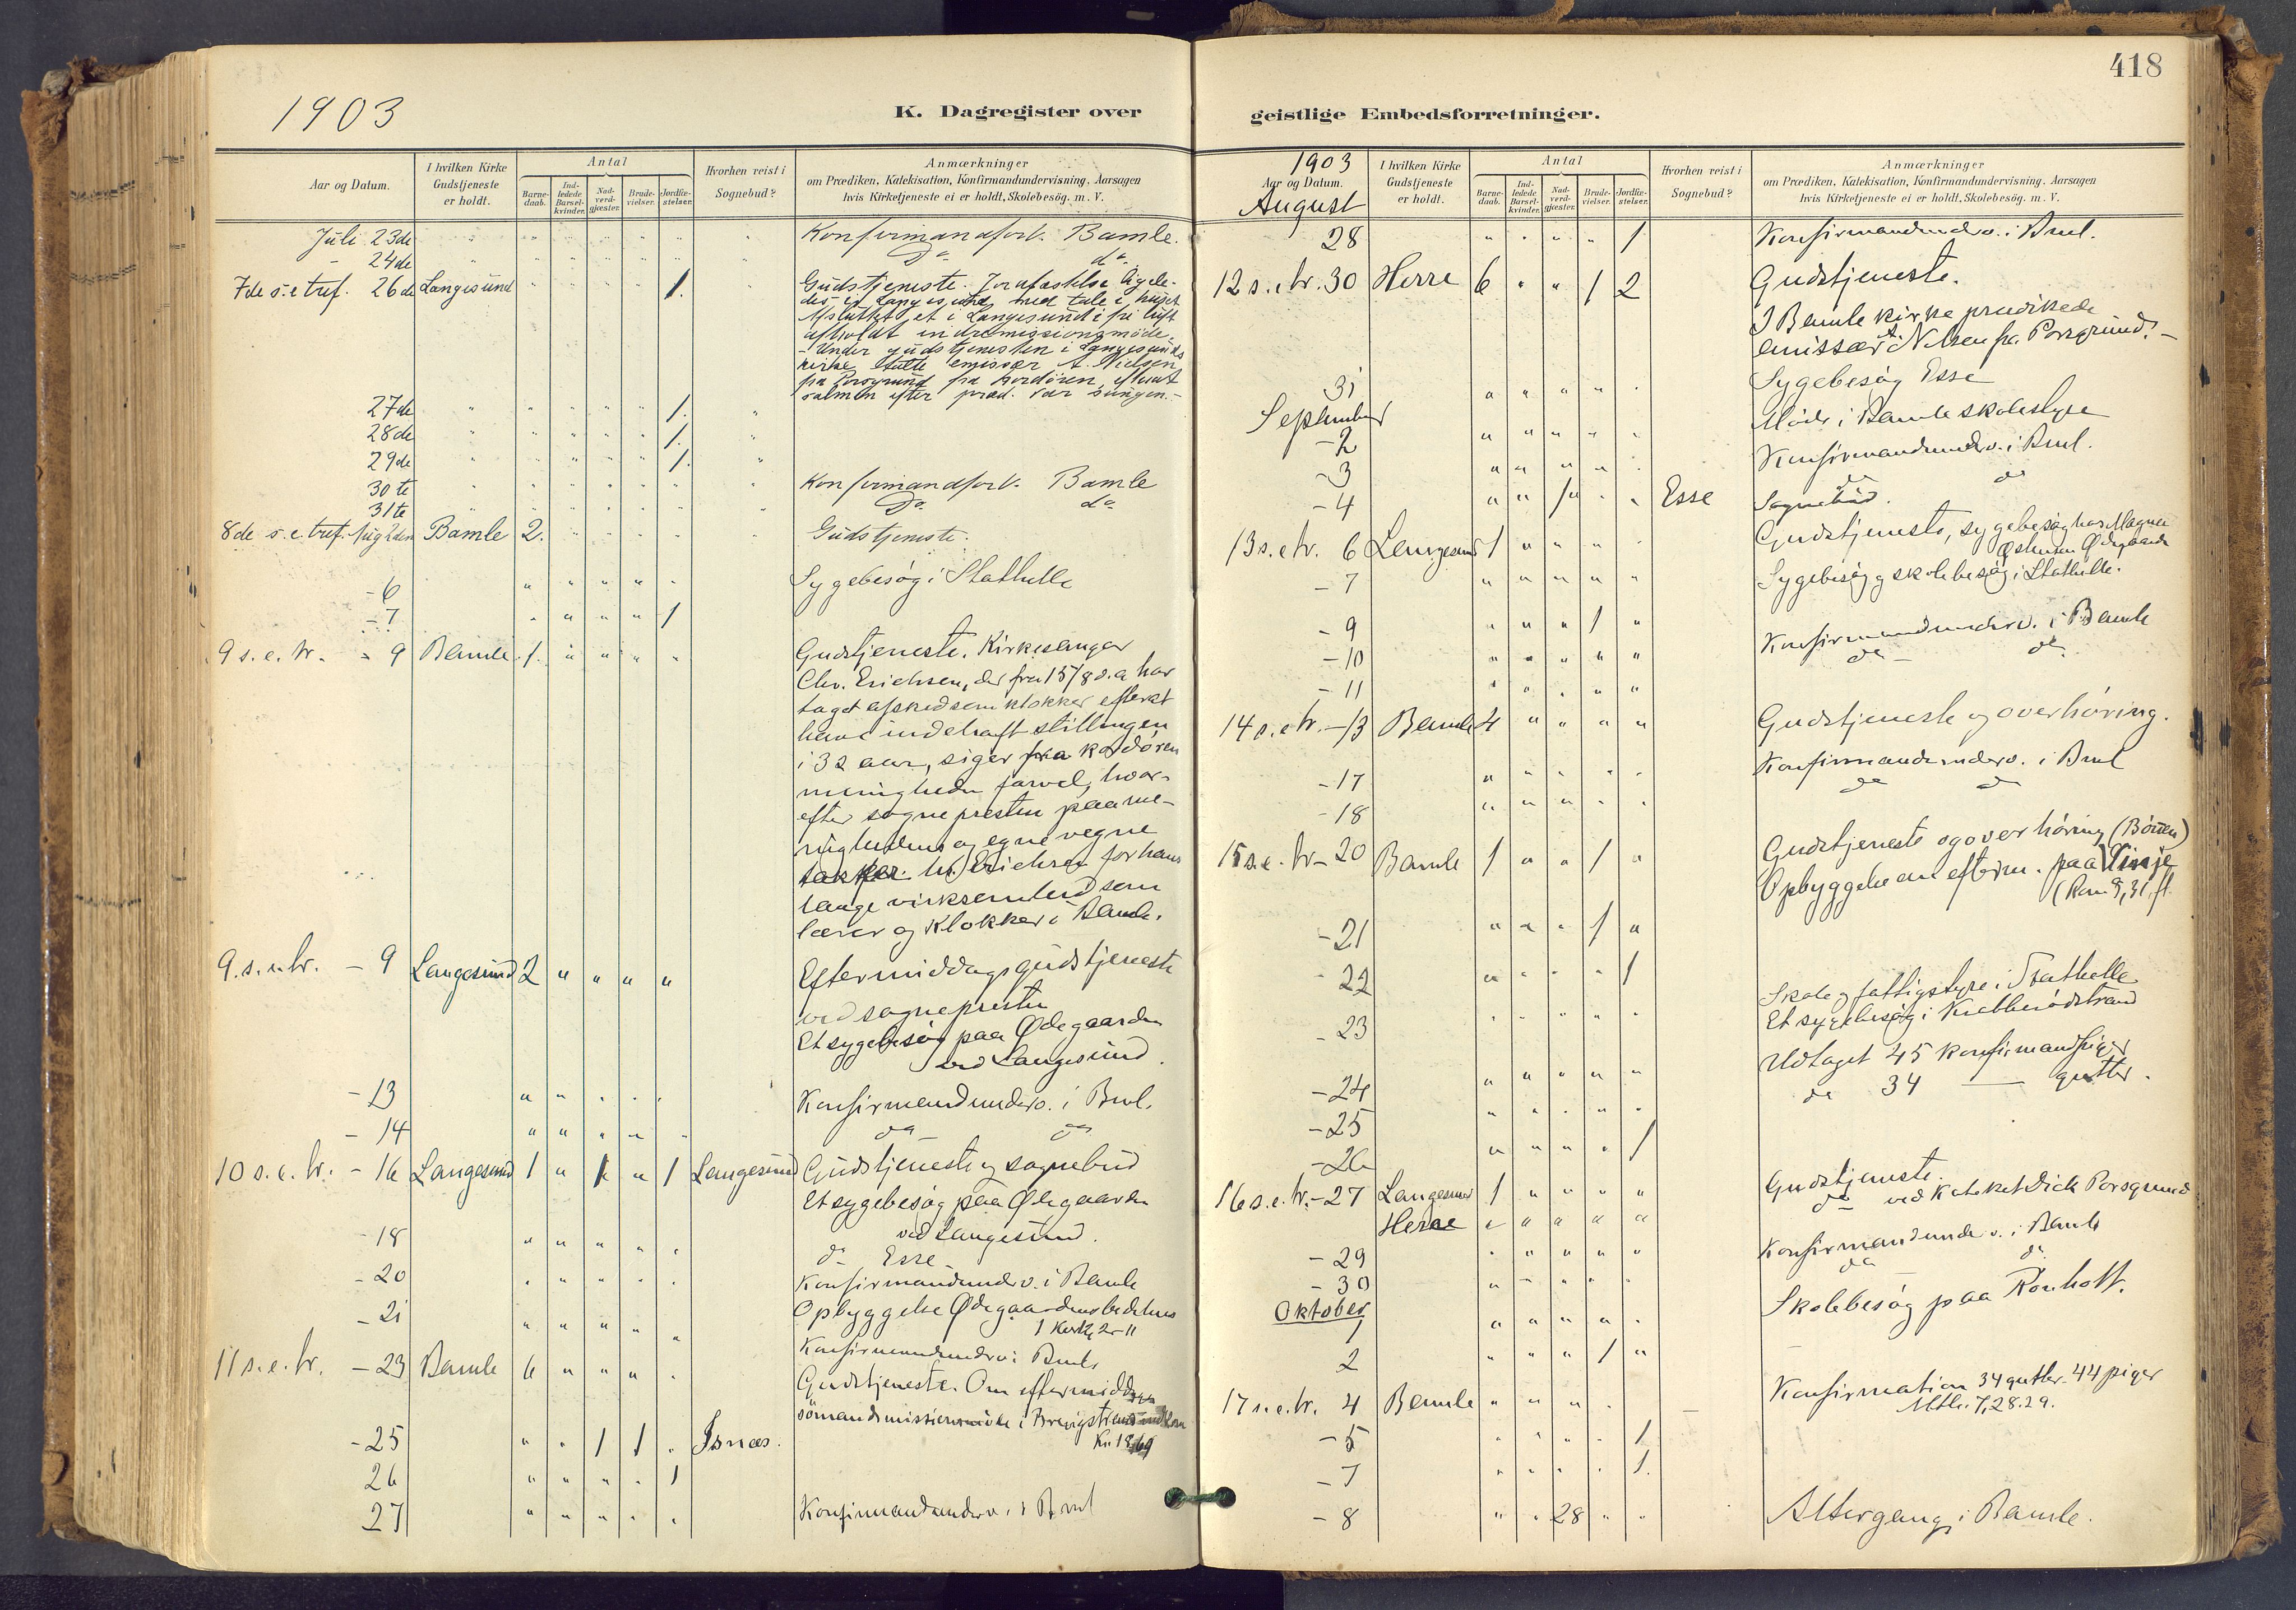 1903
K. Dagregister over
Aar og Datum.
I hvilken Kirke Gudstjeneste er holdt.
Antal
Barne-daab.
Ind-ledede Barsel-kvinder.
Nad-verd-gjæster.
Brude-vielser.
Jordfæ-stelser.
Hvorhen reist i Sognebud?
Anmærkninger
om Prædiken, Katekisation, Konfirmandundervisning, Aarsagen
hvis Kirketjeneste ei er holdt, Skolebesög. m. V.
Juli 23de " " " " " " Konfirmandforb. Bamle.
- 24de " " " " " " Do do.
7de s. e. tref. 26de Langesund " " " " 1. Gudstjeneste. Jordfæstelse ligele-
des i Langesund med tale i huset
Afsluttet et i Langesund i fri luft
afholdt indremissionsmöde.
- Under gudstjenesten i Langesunds
kirke talte emissær A. Nielsen
fra Porsgrund fra kordören, efterat
salmen efter præd. var sungen. -
27de " " " " " 1. "
28de " " " " " 1. "
29de " " " " " 1. "
30te " " " " " " Konfirmandforb. Bamle
31te " " " " " " Do. do.
8de s. e. tref. Aug 2den Bamle 2. " " " " Gudstjeneste.
- 6 " " " " " Sygebesög i Stathelle
- 7 " " " " 1
9 s. e. tr. - 9 Bamle 1. " " " " Gudstjeneste. Kirkesanger
Chr. Erichsen, der fra 15/8 d. a. har
taget afsked som klokker efterat
have indehaft stillingen
i 32 aar, siger fra kordören
menigheden farvel, hvor-
efter sognepresten paa me-
nighedens og egne vegne
takker hr. Erichsen for hans
lange virksomhed som
lærer og klokker i Bamle.
9. s. e. tr. - 9 Langesund 2 " " " " Eftermiddagsgudstjeneste
ved sognepresten
Et sygebesög paa Ødegaarden
ved Langesund.
- 13 " " " " " Konfirmandunderv. i Bml.
- 14 " " " " " do do
10 s. e. tr. - 16 Langesund 1 " 1 " 1 Langesund Gudstjeneste og sognebud
Et sygebesög paa Ødegaarden
ved Langesund.
- 18 " " " " " do Esse
- 20 " " " " " Konfirmandunderv. i Bamle
- 21 " " " " " Opbyggelse Ødegaardens bedehus
Konfirmandunderv. i Bamle
11 s. e. tr. - 23 Bamle 6 " " " " Gudstjeneste. Om eftermiddagen
sömandsmissionsmöde i Brevigstrand
- 25 " " 1 1 " Isnæs.
26 " " " " 1
27 " " " " " Konfirmandunderv. i Bml
418
geistlige Embedsforretninger.
1903
Aar og Datum.
August
I hvilken Kirke Gudstjeneste er holdt.
Antal
Barne-daab.
Ind-ledede Barsel-kvinder.
Nad-verd-gjæster.
Brude-vielser.
Jordfæ-stelser.
Hvorhen reist i Sognebud?
Anmærkninger
om Prædiken, Katekisation, Konfirmandundervisning. Aarsagen
hvis Kirketjeneste ei er holdt, Skolebesög. m. V.
28 " " " " 1 Konfirmandunderv. i Bml.
12 s. e. tr. 30 Herre 6 " " 1 2 Gudstjeneste.
I Bamle kirke prædikede
emissær A. Nilsen fra Porsgrund. -
31 " " " " " Sygebesög Esse
September
- 2 " " " " " Möde i Bamle skolestyre
- 3 " " " " " Konfirmandunderv. i Bml.
do do
- 4 " " 1 " " Esse Sognebud.
13 s. e. tr. 6 Langesund 1 " " " " Gudstjeneste, sygebesög hos Magnus
Ødegaarden
- 7 " " " " " Sygebesög og skolebesög i Stathelle.
- 9 " " " 1 "
- 10 " " " " " Konfirmandunderv. i Bamle
- 11 " " " " " do - do
14 s. e. tr. - 13 Bamle 4 " " " " Gudstjeneste og overhöring.
- 17 " " " " " Konfirmandunderv. i Bml
- 18 " " " " " do do
15 s. e. tr. - 20 Bamle 1 " " 1 " Gudstjeneste og overhöring (Bönen)
Opbyggelse om efterm. paa Vinje
(Rom 9,31 ff.
- 21 " " " 1 "
- 22 " " " " 1
- 23 " " " " " Skole og fattigstyre i Stathelle
Et sygebesög i Krabberödstrand
- 24 " " " " " Udtaget 45 konfirmandpiger
- 25 " " " " " do 34 — gutter.
- 26 " " " " 1
16 s. e. tr. - 27 Langesund 1 " " " " Gudstjeneste.
Herre " " " " " do ved kateket Dick Porsgrund
- 29 " " " " " Konfirmandunderv. i Bamle
- 30 " " " " " do do
Oktober
1 " " " " " Skolebesög paa Rönholt.
2 " " " 1 "
17 s. e. tr. 4 Bamle " " " " Konfirmation 34 gutter - 44 piger
Mtth. 7,28.29.
- 5 " " " " 1
- 7 " " " " 1.
- 8 " " 28 " " Altergang i Bamle.